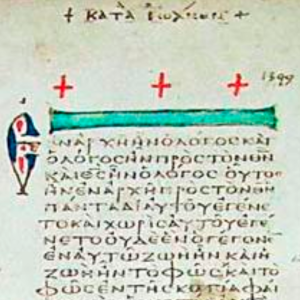 + ΚΑΤΑ ΙΩΑΝΝΗΝ +
1399
ΕΝΑΡΧΗΗΝΟΛΟΓΟΣΚΑΙ
ΟΛΟΓΟΣΗΝΠΡΟΣΤΟΝΘΝ
ΚΑΙΘΣΗΝΟΛΟΓΟΣ ΟΥΤΟ
ΗΝΕΝΑΡΧΗΠΡΟΣΤΟΝΘΝ
ΠΑΝΤΑΔΙΑΥΤΟΥΕΓΕΝΕ
ΤΟΚΑΙΧΩΡΙΣΑΥΤΟΥΕΓΕ
ΝΕΤΟΟΥΔΕΕΝΟΓΕΓΟΝΕ
ΕΝΑΥΤΩΖΩΗΗΝΚΑΙΗ
ΖΩΗΗΝΤΟΦΩΣΚΑΙΤΟ
ΦΩΣΕΝΤΗΣΚΟΤΙΑΦΑΙ